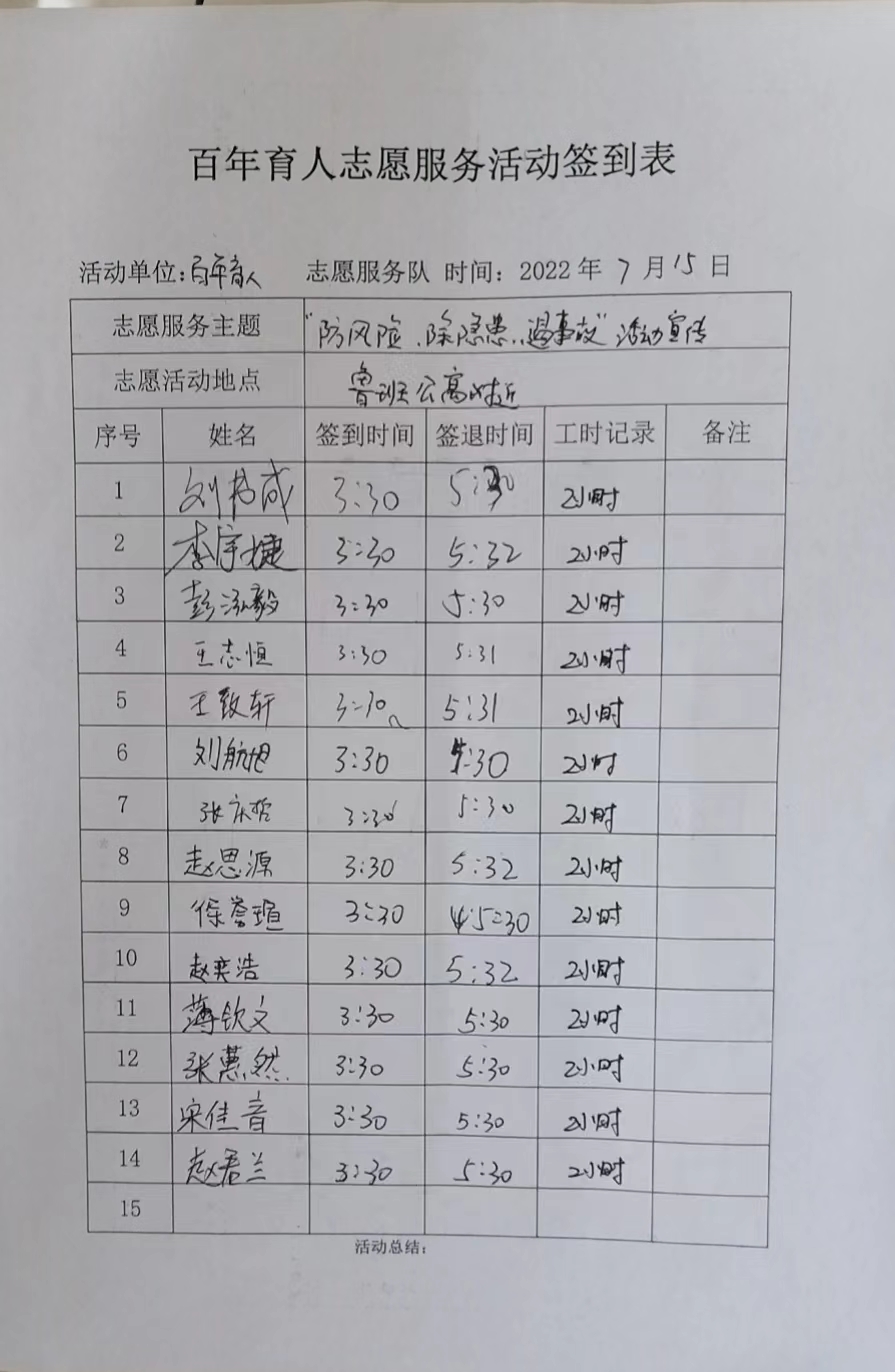 百年育人志愿服务活动签到表
活动单位:百年育人 志愿服务队 时间：2022年 7 月 15 日
志愿服务主题 "防风险、除隐患、遏事故"活动宣传
志愿活动地点 鲁班公寓附近
序号 姓名 签到时间 签退时间 工时记录 备注
1 刘书成 3:30 5:30 2小时
2 李宇捷 3:30 5:32 2小时
3 彭泓毅 3:30 5:30 2小时
4 王志恒 3:30 5:31 2小时
5 王致轩 3:30 5:31 2小时
6 刘航旭 3:30 5:30 2小时
7 张庆哲 3:30 5:30 2小时
8 赵思源 3:30 5:32 2小时
9 徐誉瑄 3:30 5:30 2小时
10 赵奕浩 3:30 5:32 2小时
11 薄钦文 3:30 5:30 2小时
12 张蕙然 3:30 5:30 2小时
13 宋佳音 3:30 5:30 2小时
14 赵君兰 3:30 5:30 2小时
15
活动总结：